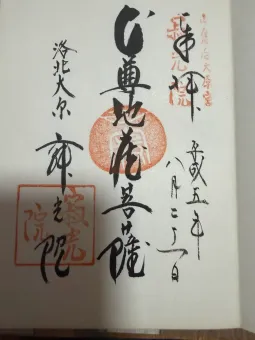 奉拝
平成五年
八月二十一日
本尊地蔵菩薩
洛北大原
寂光院
寂光院